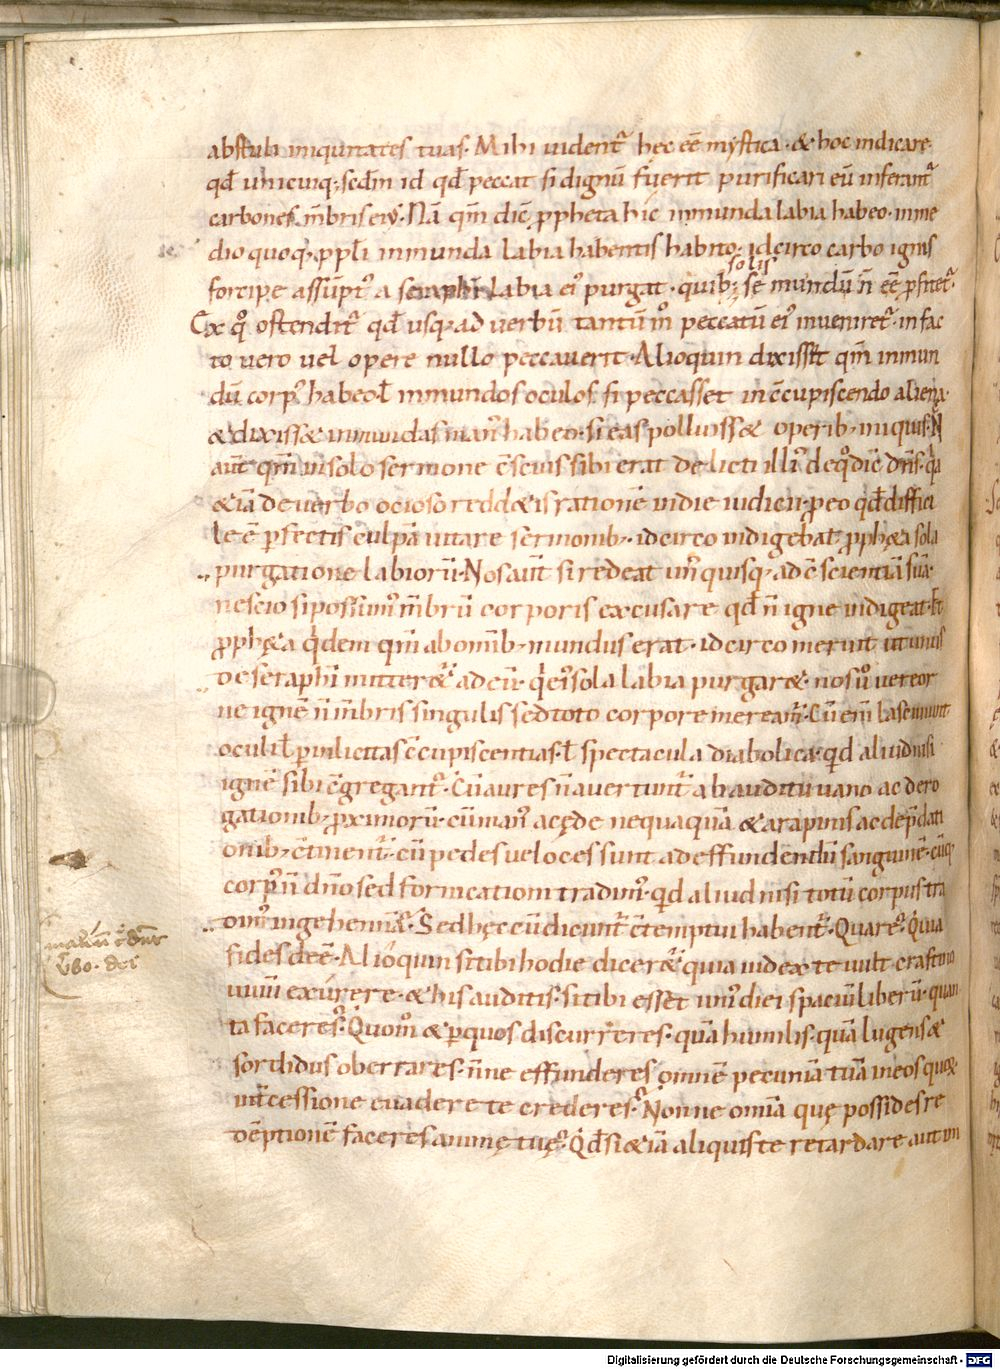 abstuli iniquitates tuas. Mihi uident̃ hęc eē mystica. & hoc indicare.
qđ unicuiq; scđm id qđ peccat si dignũ fuerit purificari eũ inferant̃
carbones mẽbris ei᾽. Nã qm̃ dic̃ ppheta hic inmunda labia habeo. inme
dio quoq; pplĩ inmunda labia habentis habito. idcirco carbo ignis
solis
forcipe assũpt᾽ a seraphin labia ei᾽ purgat. quib; se mundũ ñ eẽ pfitet̃.
Ex q̊ ostendit̃ qđ usq; ad uerbũ tantũm̊ peccatũ ei᾽ inueniret̃. in fac
to uero uel opere nullo peccauerit. Alioquin dixisset qm̃ inmun
dũ corp᾽ habeo ł inmundos oculos. si peccasset in c̃cupiscendo aliena.
& dixiss& inmundas man᾽ habeo. si eas polluiss& operib; iniquis. N̄
aut̃ qm̃ in solo sermone c̃scius sibi erat delicti illi᾽ de q̊ dic̃ dñs. q̃a
& iã de uerbo ocioso redd&is rationẽ in die iudicii. p eo qđ diffici
le ẽ pfectis culpã uitare sermonib;. idcirco indigebat pph&a sola
purgatione labiorũ. Nos aut̃ si redeat un᾽quisq; ad c̃scientiã suã.
nescio si possim᾽ mẽbrũ corporis excusare qđ ñ igne indigeat. Et
pph&a q̇dem qm̃ ab omĩb; mundus erat. idcirco meruit ut unus
de seraphĩ mitter&̃ ad eũ. q̇ ei᾽ sola labia purgar&. nos ů uereor
ne ignẽ ñ mẽbris singulis sed toto corpore meream̃. Cũ eñi lasciuiunt
oculi ł p inlicitas c̃cupiscentias. ł spectacula diabolica. quid aliud nisi
ignẽ sibi c̃gregant᾽. Cũ aures ñ auertunt̃ ab auditu uano ac dero
gationib; pximorũ. cũ man᾽ a cęde nequaquã & a rapinis ac depdati
onib; c̃tinent̃. cũ pedes ueloces sunt ad effundendũ sanguinẽ. cũq;
corp᾽ ñ dño sed fornicationi tradim᾽. qid aliud nisi totũ corpus tra
dim᾽ in gehennã. Sed hęc cũ dicunt̃ c̃temptui habent̃. Quare. Quia
fides deẽ. Alioquin si tibi hodie dicer&̃ quia iudex te uult crastino
uiuũ exurere. & his auditis. si tibi esset uni᾽ diei spaciũ liberũ. quan
ta faceres. Quom̊ & p quos discurreres. quã humilis. quã lugens &
sordidus oberrares. ñne effunderes omnẽ pecuniã tuã in eos quo&#42843;
int̃cessione euadere te crederes. Nonne omia quę possides re
dẽptionẽ faceres animę tuę. Qđ si & iã aliquis te retardare aut im